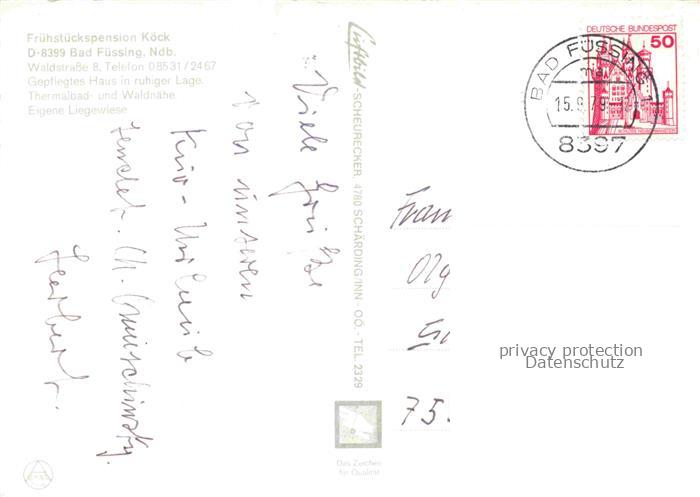 Frühstückspension Köck
D-8399 Bad Füssing, Ndb.
Waldstraße 8, Telefon 08531/2467
Gepflegtes Haus in ruhiger Lage.
Thermalbad- und Waldnähe
Eigene Liegewiese
Viele Grüße
von unserem
Kur-Urlaub
sendet
Herbert.
Luftbild-SCHEURECKER, 4780 SCHÄRDING/INN - OÖ. - TEL. 2329
Das Zeichen
für Qualität
DEUTSCHE BUNDESPOST
50
BAD FÜSSING 1
15.9.79
8397
Frau
Olg
75.
privacy protection
Datenschutz